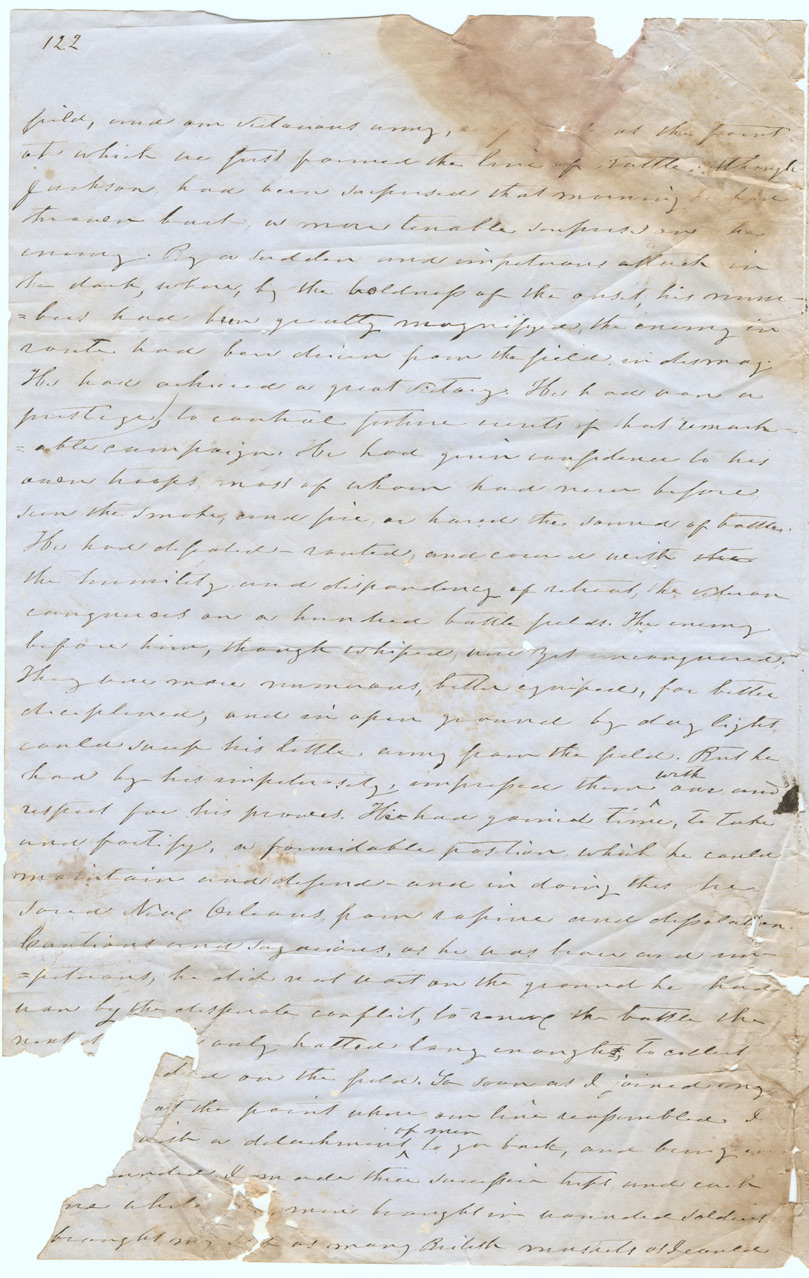 122
field, and our victorious army, as the point
at which we first formed the line of battle. Though
Jackson, had been surprised that morning he had
thrown back, a more terrable surprise on the
enemy. By a sudden and impetuous attack in
the dark, where, by the boldness of the onset, his num-
=bers had been greatly magnifyed, the enemy in
route had been driven from the field, in dismay.
He had achieved a great victory. He had won a
prestige, to control future events of that remark-
=able campaign. He had given confidence to his
own troops, most of whom had never before
seen the smoke, and fire, or heard the sound of battle.
He had defeated - routed, and covered with
the humility and dispondency of retreat, the veteran
conquerors on a hundred battle fields. The enemy
before him, though whiped, was yet unconquered.
They were more numerous, better equiped, far better
disciplened, and in open ground by day light,
could sweep his little army from the field. But he
had by his impetuosity, impressed them with awe and
respect for his prowes. He had gained time, to take
and fortify, a formidable position, which he could
maintain and defend - and in doing this he
saved New Orleans, from rapine and desolation.
Cautious and sagacious, as he was brave and im-
=petuous, he did not wait on the ground he had
won by the desperate conflict, to renew the battle the
next only halted long enough to collect
on the field. So soon as I joined my
at the point where our line reassembled I
with a detachment of men to go back, and being
I made three successive trips, and each
me while men brought in wounded soldiers
brought my as many British muskets as I could